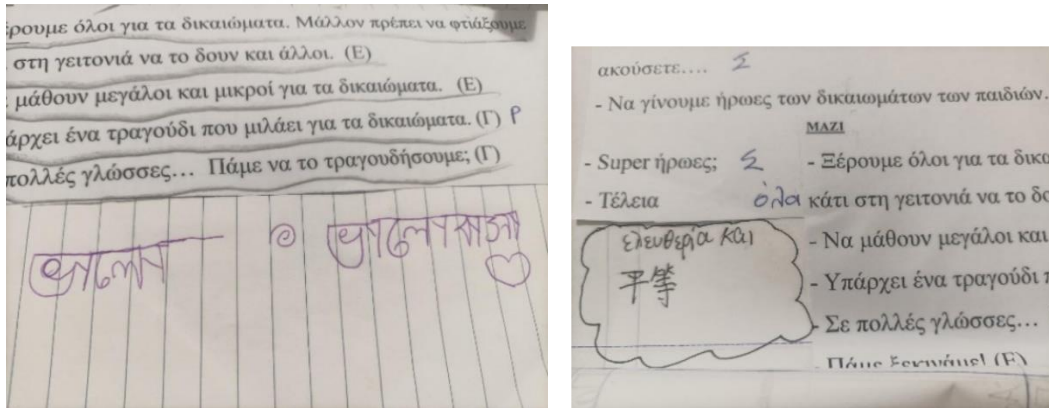 ρουμε όλοι για τα δικαιώματα. Μάλλον πρέπει να φτιάξουμε
στη γειτονιά να το δουν και άλλοι. (Ε)
μάθουν μεγάλοι και μικροί για τα δικαιώματα. (Ε)
άρχει ένα τραγούδι που μιλάει για τα δικαιώματα. (Γ) Ρ
πολλές γλώσσες... Πάμε να το τραγουδήσουμε; (Γ)
ভালো ভালোবাসা
ακούσετε.... Σ
- Να γίνουμε ήρωες των δικαιωμάτων των παιδιών.
ΜΑΖΙ
- Super ήρωες; Σ
- Τέλεια
- Ξέρουμε όλοι για τα δικα
όλα κάτι στη γειτονιά να το δο
- Να μάθουν μεγάλοι και
- Υπάρχει ένα τραγούδι π
- Σε πολλές γλώσσες...
- Πάμε ξεκινάμε! (Ε)
ελευθερία και
平等